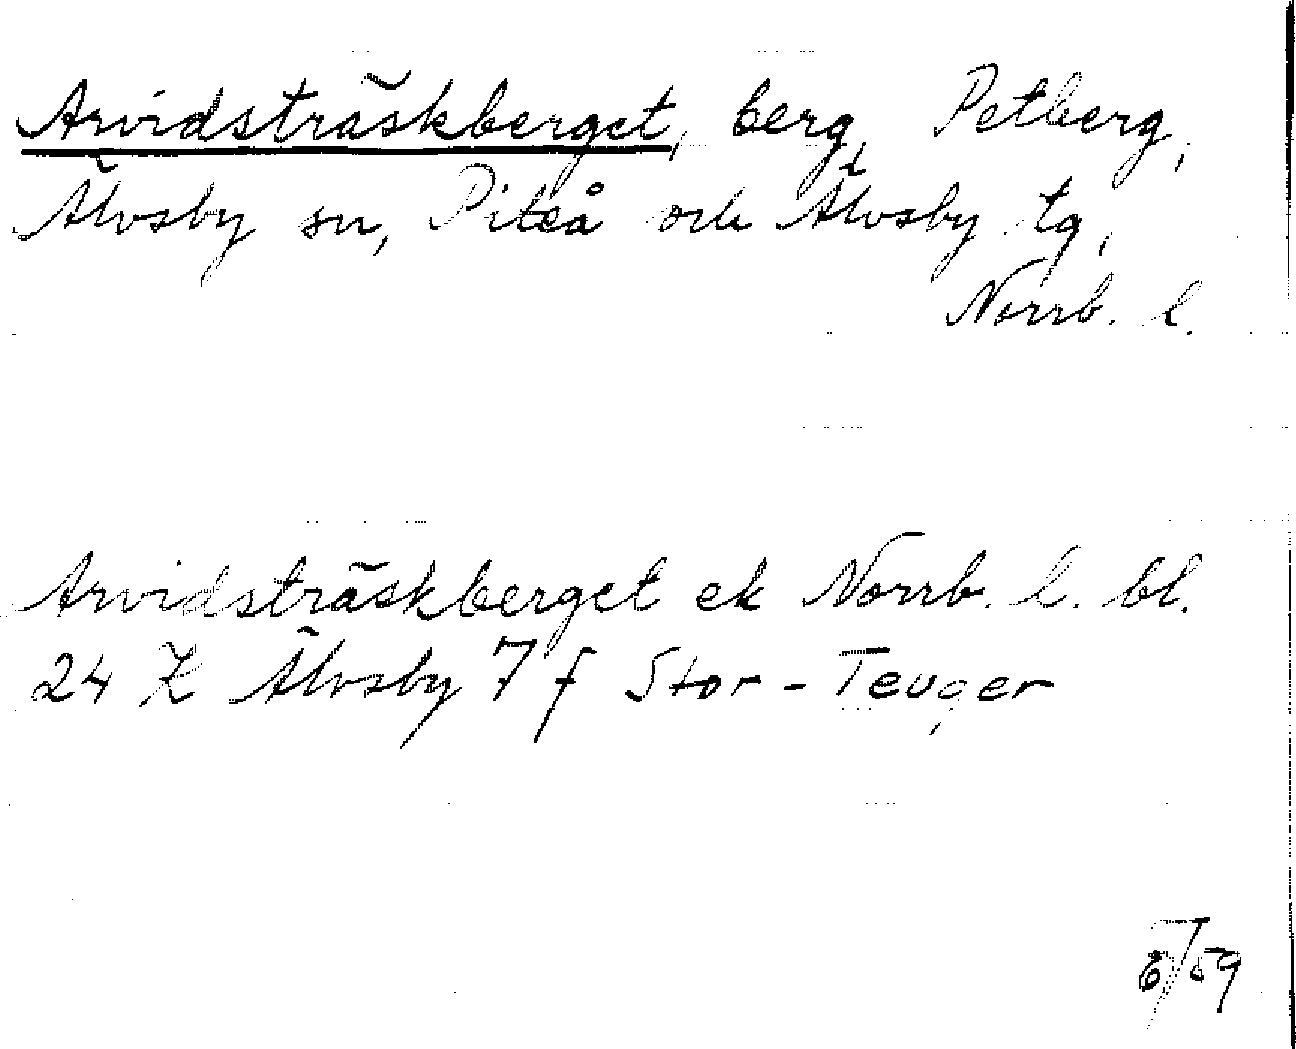 Arvidsträskberget, berg, Petberg,
Älvsby sn, Piteå och Älvsby tg,
Norrb. l.
Arvidsträskberget ek Norrb. l. bl.
24 K Älvsby 7 f Stor-Teuger